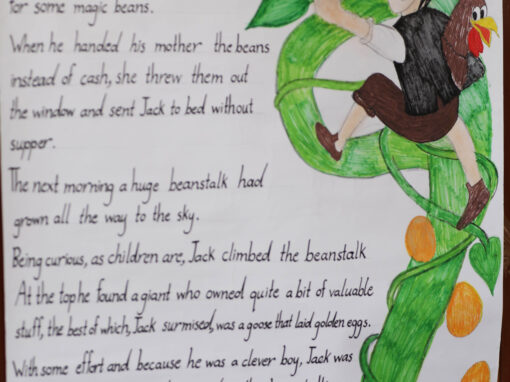 for some magic beans.
When he handed his mother the beans
instead of cash, she threw them out
the window and sent Jack to bed without
supper.
The next morning a huge beanstalk had
grown all the way to the sky.
Being curious, as children are, Jack climbed the beanstalk
At the top he found a giant who owned quite a bit of valuable
stuff, the best of which, Jack surmised, was a goose that laid golden eggs.
With some effort and because he was a clever boy, Jack was